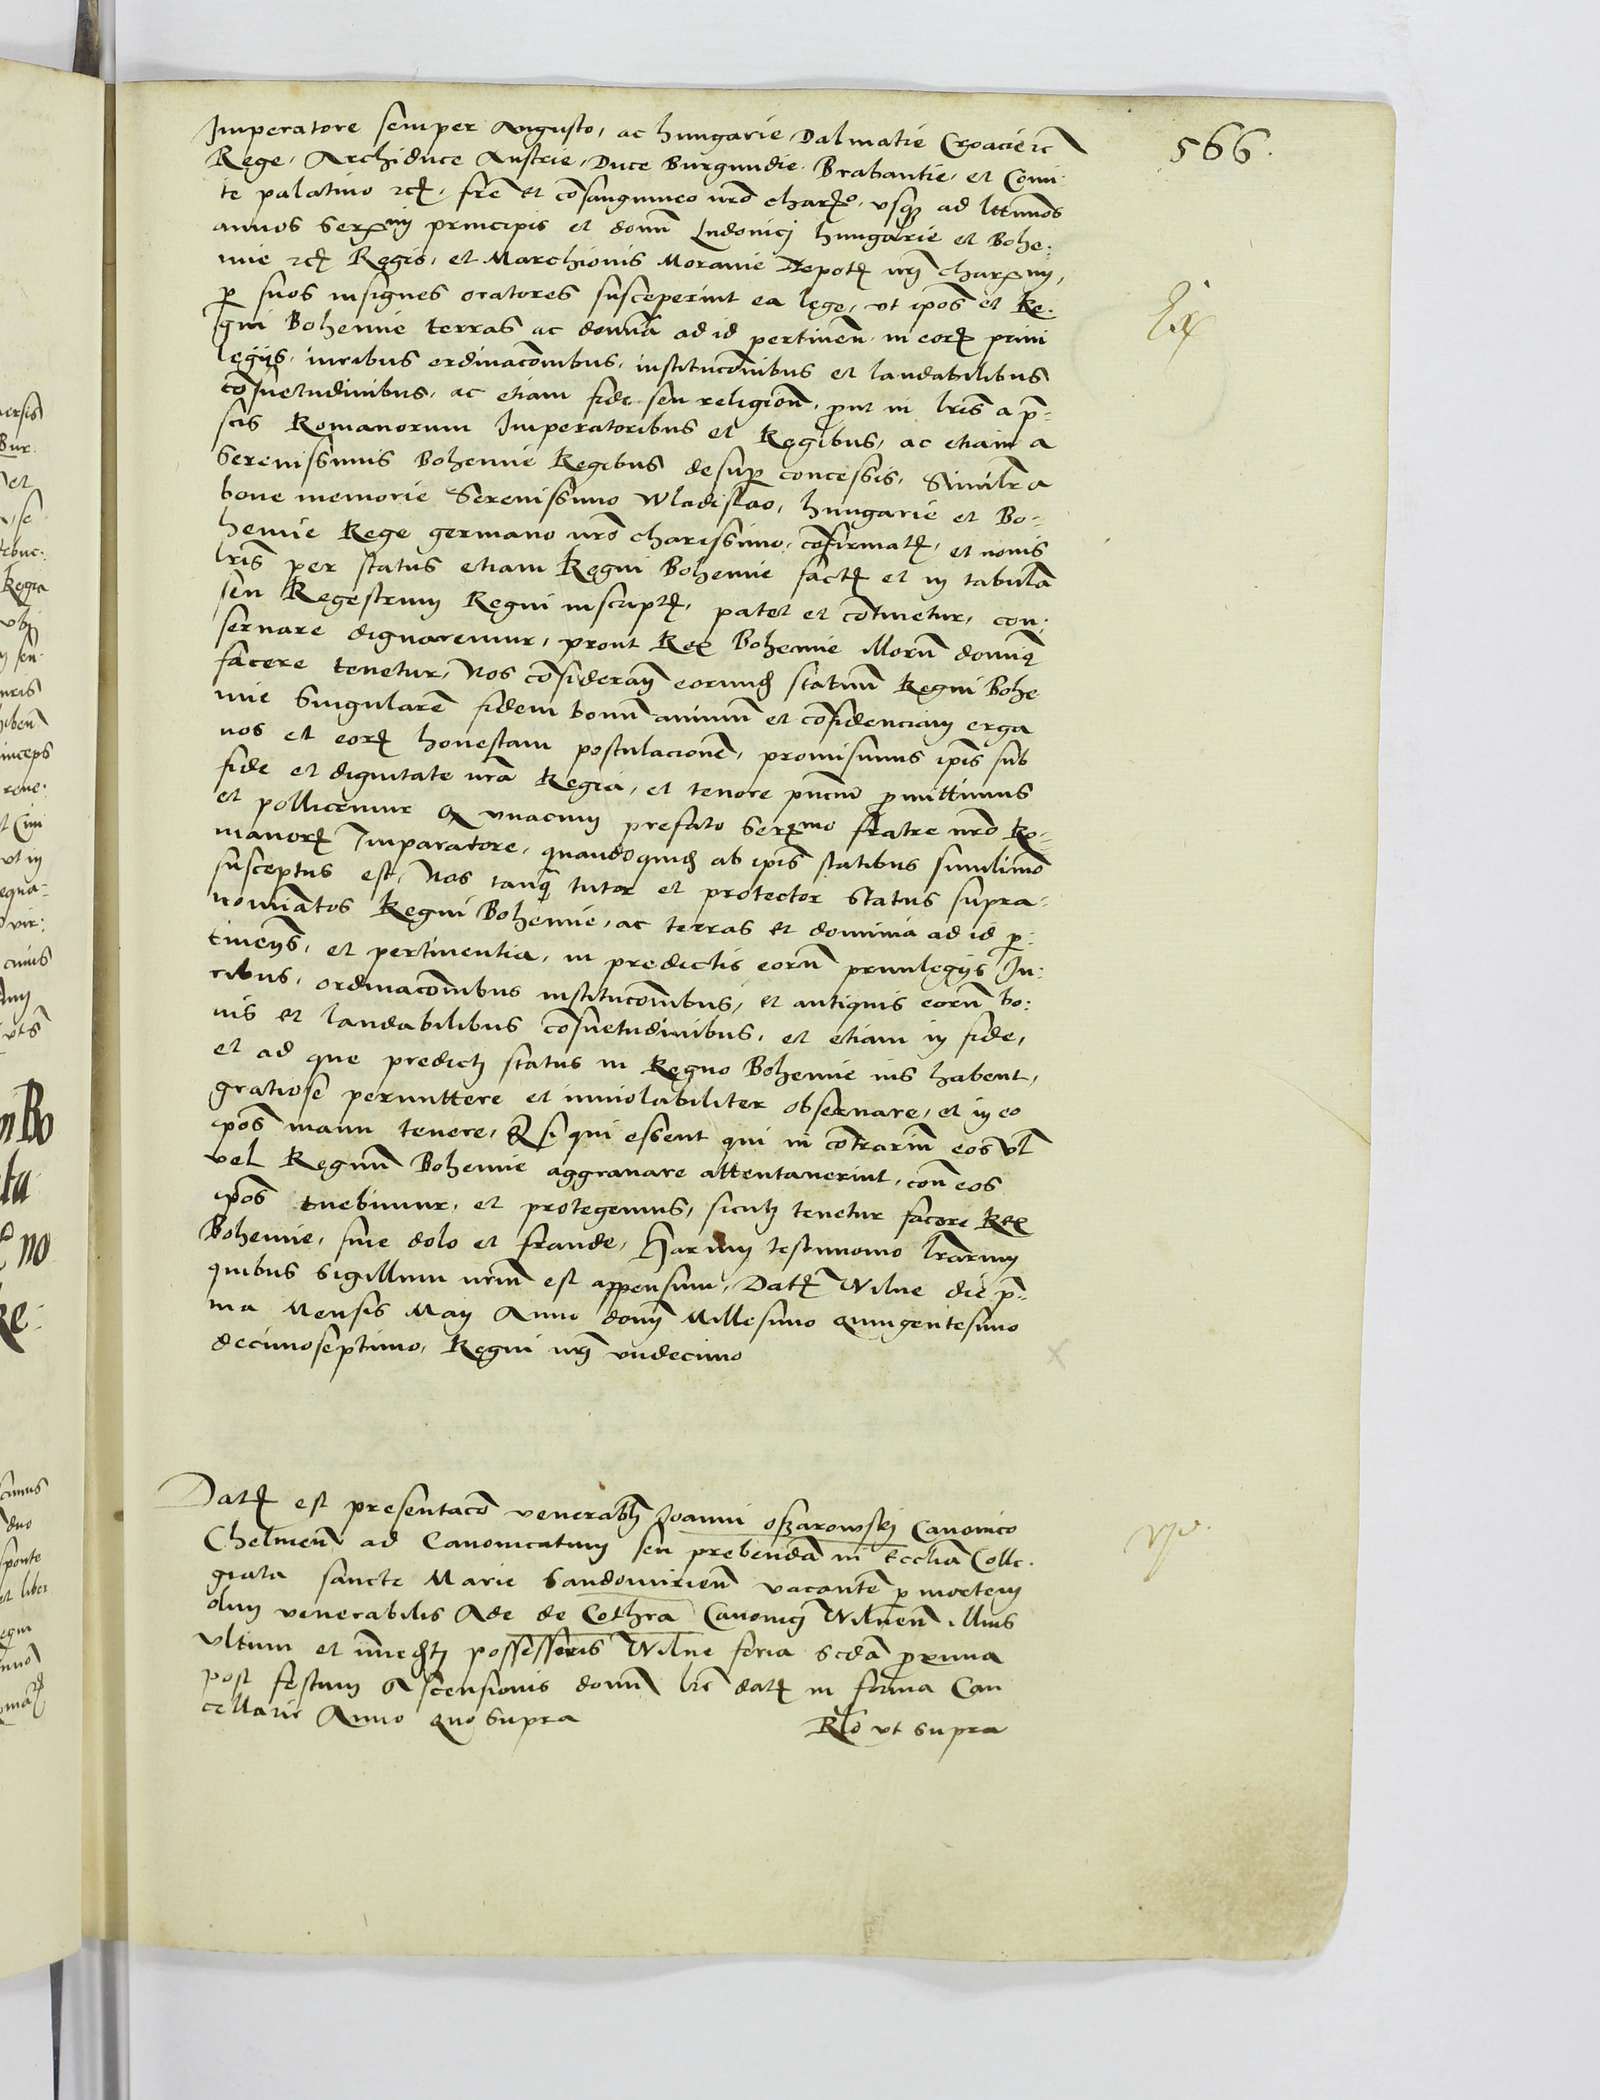 566.
Imperatore semper Augusto, ac hungarie, Dalmatie Croacie zc
Rege, Archiduce Austrie, Duce Burgundie, Brabantie, et Comi
te palatino zcꝫ, frē et cōsanguineo nrō charꝫo, vsqꝫ ad lttimos
annos Serͫmi principis et domī Ludovici hungarie et Bohe:
mie zcꝫ Regis, et Marchionis Moravie Nepotꝫ nrī charͫmi,
ꝑ suos insignes oratores susceperint ea lege, vt ipōs et Re-
gni Bohemie terras ac domīa ad id pertinen̄ in eorꝫ privi
legijs, iuribus ordinacōnibus, institucōnibus et laudabilibus
cōsuetudinibus, ac etiam fide seu religion̄, ꝓut in lrīs a p̄-
scis Romanorum Imperatoribus et Regibus, ac etiam a
Serenissimis Bohemie Regibus desuꝑ concessis, Similr̄ a
bone memorie Serenissimo Wladislao, hungarie et Bo-
hemie Rege germano nrō charissimo, cōfirmatꝫ, et novis
lrīs per status etiam Regni Bohemie factꝫ et in tabulā
seu Regestrum Regni inscriptꝫ, patet et cōtinetur, con:
servare dignaremur, prout Rex Bohemie illorū domiꝫ
facere tenetur, Nos cōsideran̄ eorundꝫ statuum Regni Bohe
mie Singularē fidem bonū animū et cōfidenciam erga
nos et eorꝫ honestam postulacionē, promisimus ipīs sub
fide et dignitate nrā Regia, et tenore pn̄ciū ꝓmittimus
et pollicemur Q unacum prefato Serͫmo fratre nrō Ro-
manorꝫ Imparatore, quandoquidꝫ ab ipīs statibus similimō
susceptus est, Nos tanqꝫ tutor et protector Status supra-
nomiātos Regni Bohemie, ac terras et dominia ad id ꝑ-
tinen̄s, et pertinentia, in predictis eorū privilegijs Iu:
ribus, ordinacōnibus institucōnibus, et antiquis eorū bo:
nis et laudabilibus cōsuetudinibus, et etiam in fide,
et ad que predictꝫ status in Regno Bohemie ius habent,
gratiose permittere et inviolabiliter observare, et in eo
ipōs manu tenere, Et si qui essent qui in cōtrariū eos vl̄
vel Regnū Bohemie aggravare attentaverint, con̄ eos
ipōs tuebimur, et protegemus, sicutꝫ tenetur facere Rex
Bohemie, sine dolo et fraude, Harum testimonio lrārum
quibus Sigillum nrūm est appensum, Datꝫ Wilne die p̄-
ma Mensis Maij Anno domī Millesimo Quingentesimo
decimoseptimo, Regni nrī vndecimo
Datꝫ est presentacō venerabꝫ Joanni oszarowskj Canonico
Chelmen̄ ad Canonicatum seu prebendā in Ecclīa Colle-
giata sancte Marie Sandomirien̄ vacantē ꝑ mortem
olim venerabilis Ade de Cothra Canonicj Wilnen̄ illius
vltimi et īmedtꝫ possessoris Wilne feria scdā proxima
post festum Ascensionis domī lrē datꝫ in forma Can
cellarie Anno quo Supra
Rlō vt supra